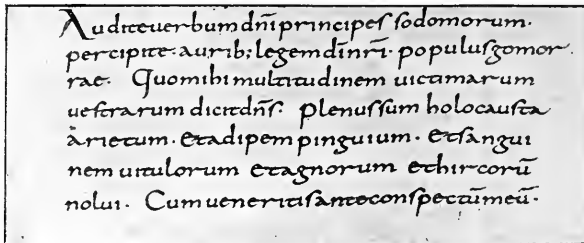 Auditeuerbumdn̄iprincipessodomorum·
percipite·aurib;legemdīnr̄i·populusgomor
rae· Quomihimultitudinem uictimarum
uestrarum dicitdn̄s· Plenussum holocausta
arietum· Etadipempinguium· Etsangui
nem uitulorum etagnorum ethircorū
nolui· Cumueneritisanteconspectūmeū·